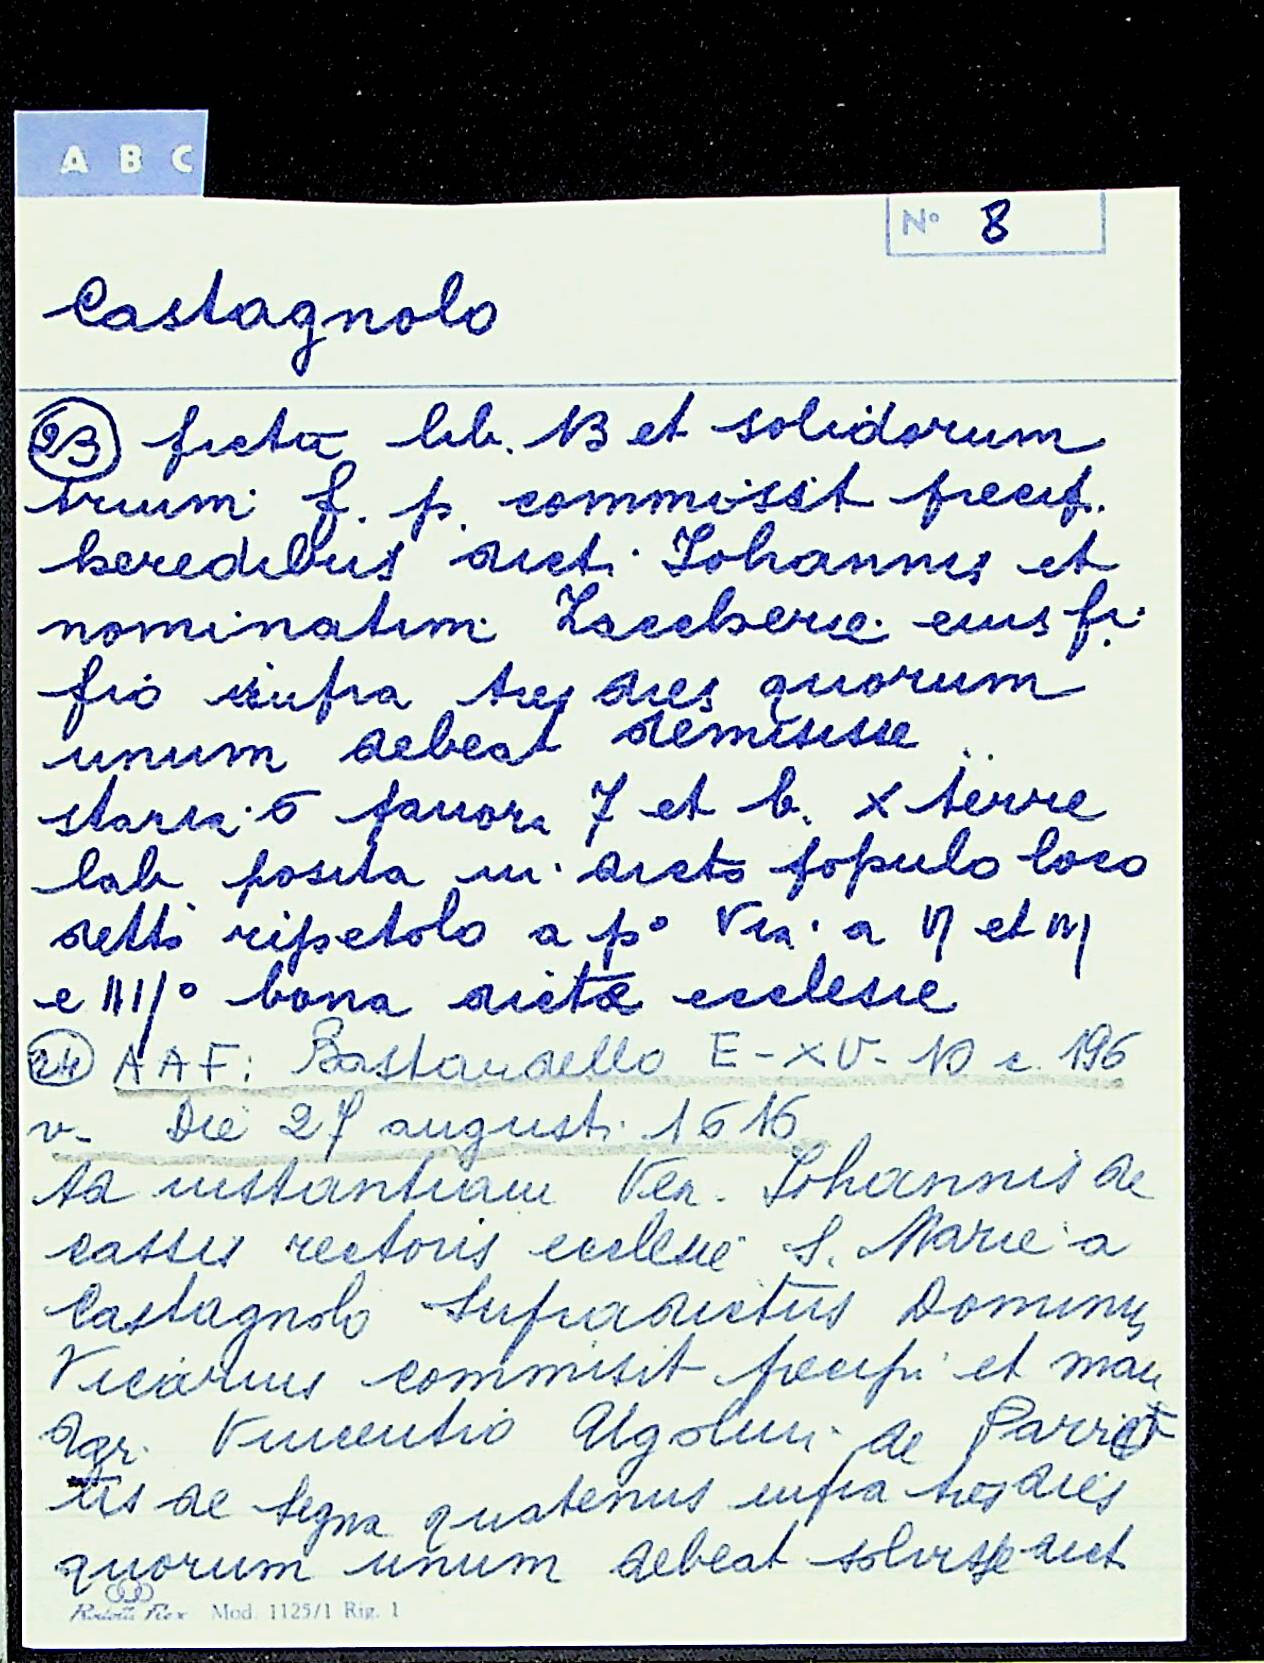 A B C
N° 8
Castagnolo
23 ficta lib. 13 et solidorum
trium f. p. commissit precip.
heredibus dicti Iohannis et
nominatim Zaccherie eius fi
lio infra tres dies quorum
unum debeat demisisse
staria 6 panora 7 et b. X terre
lab posita in dicto populo loco
detto ripetolo a p° Via a II et III
e IIII° bona dicte ecclesie
24 AAF: Bastardello E-XV-10 c. 196
v. Die 27 augusti 1616
Ad instantiam Ven. Iohannis de
cassis rectoris ecclesie S. Marie a
Castagnolo supradictus Dominus
Vicarius commisit precipi et man
dar. Vincentio Ugolini de Parret
tis de Segna quatenus infra tres dies
quorum unum debeat solvisse dict
Mod. 1125/1 Rig. 1